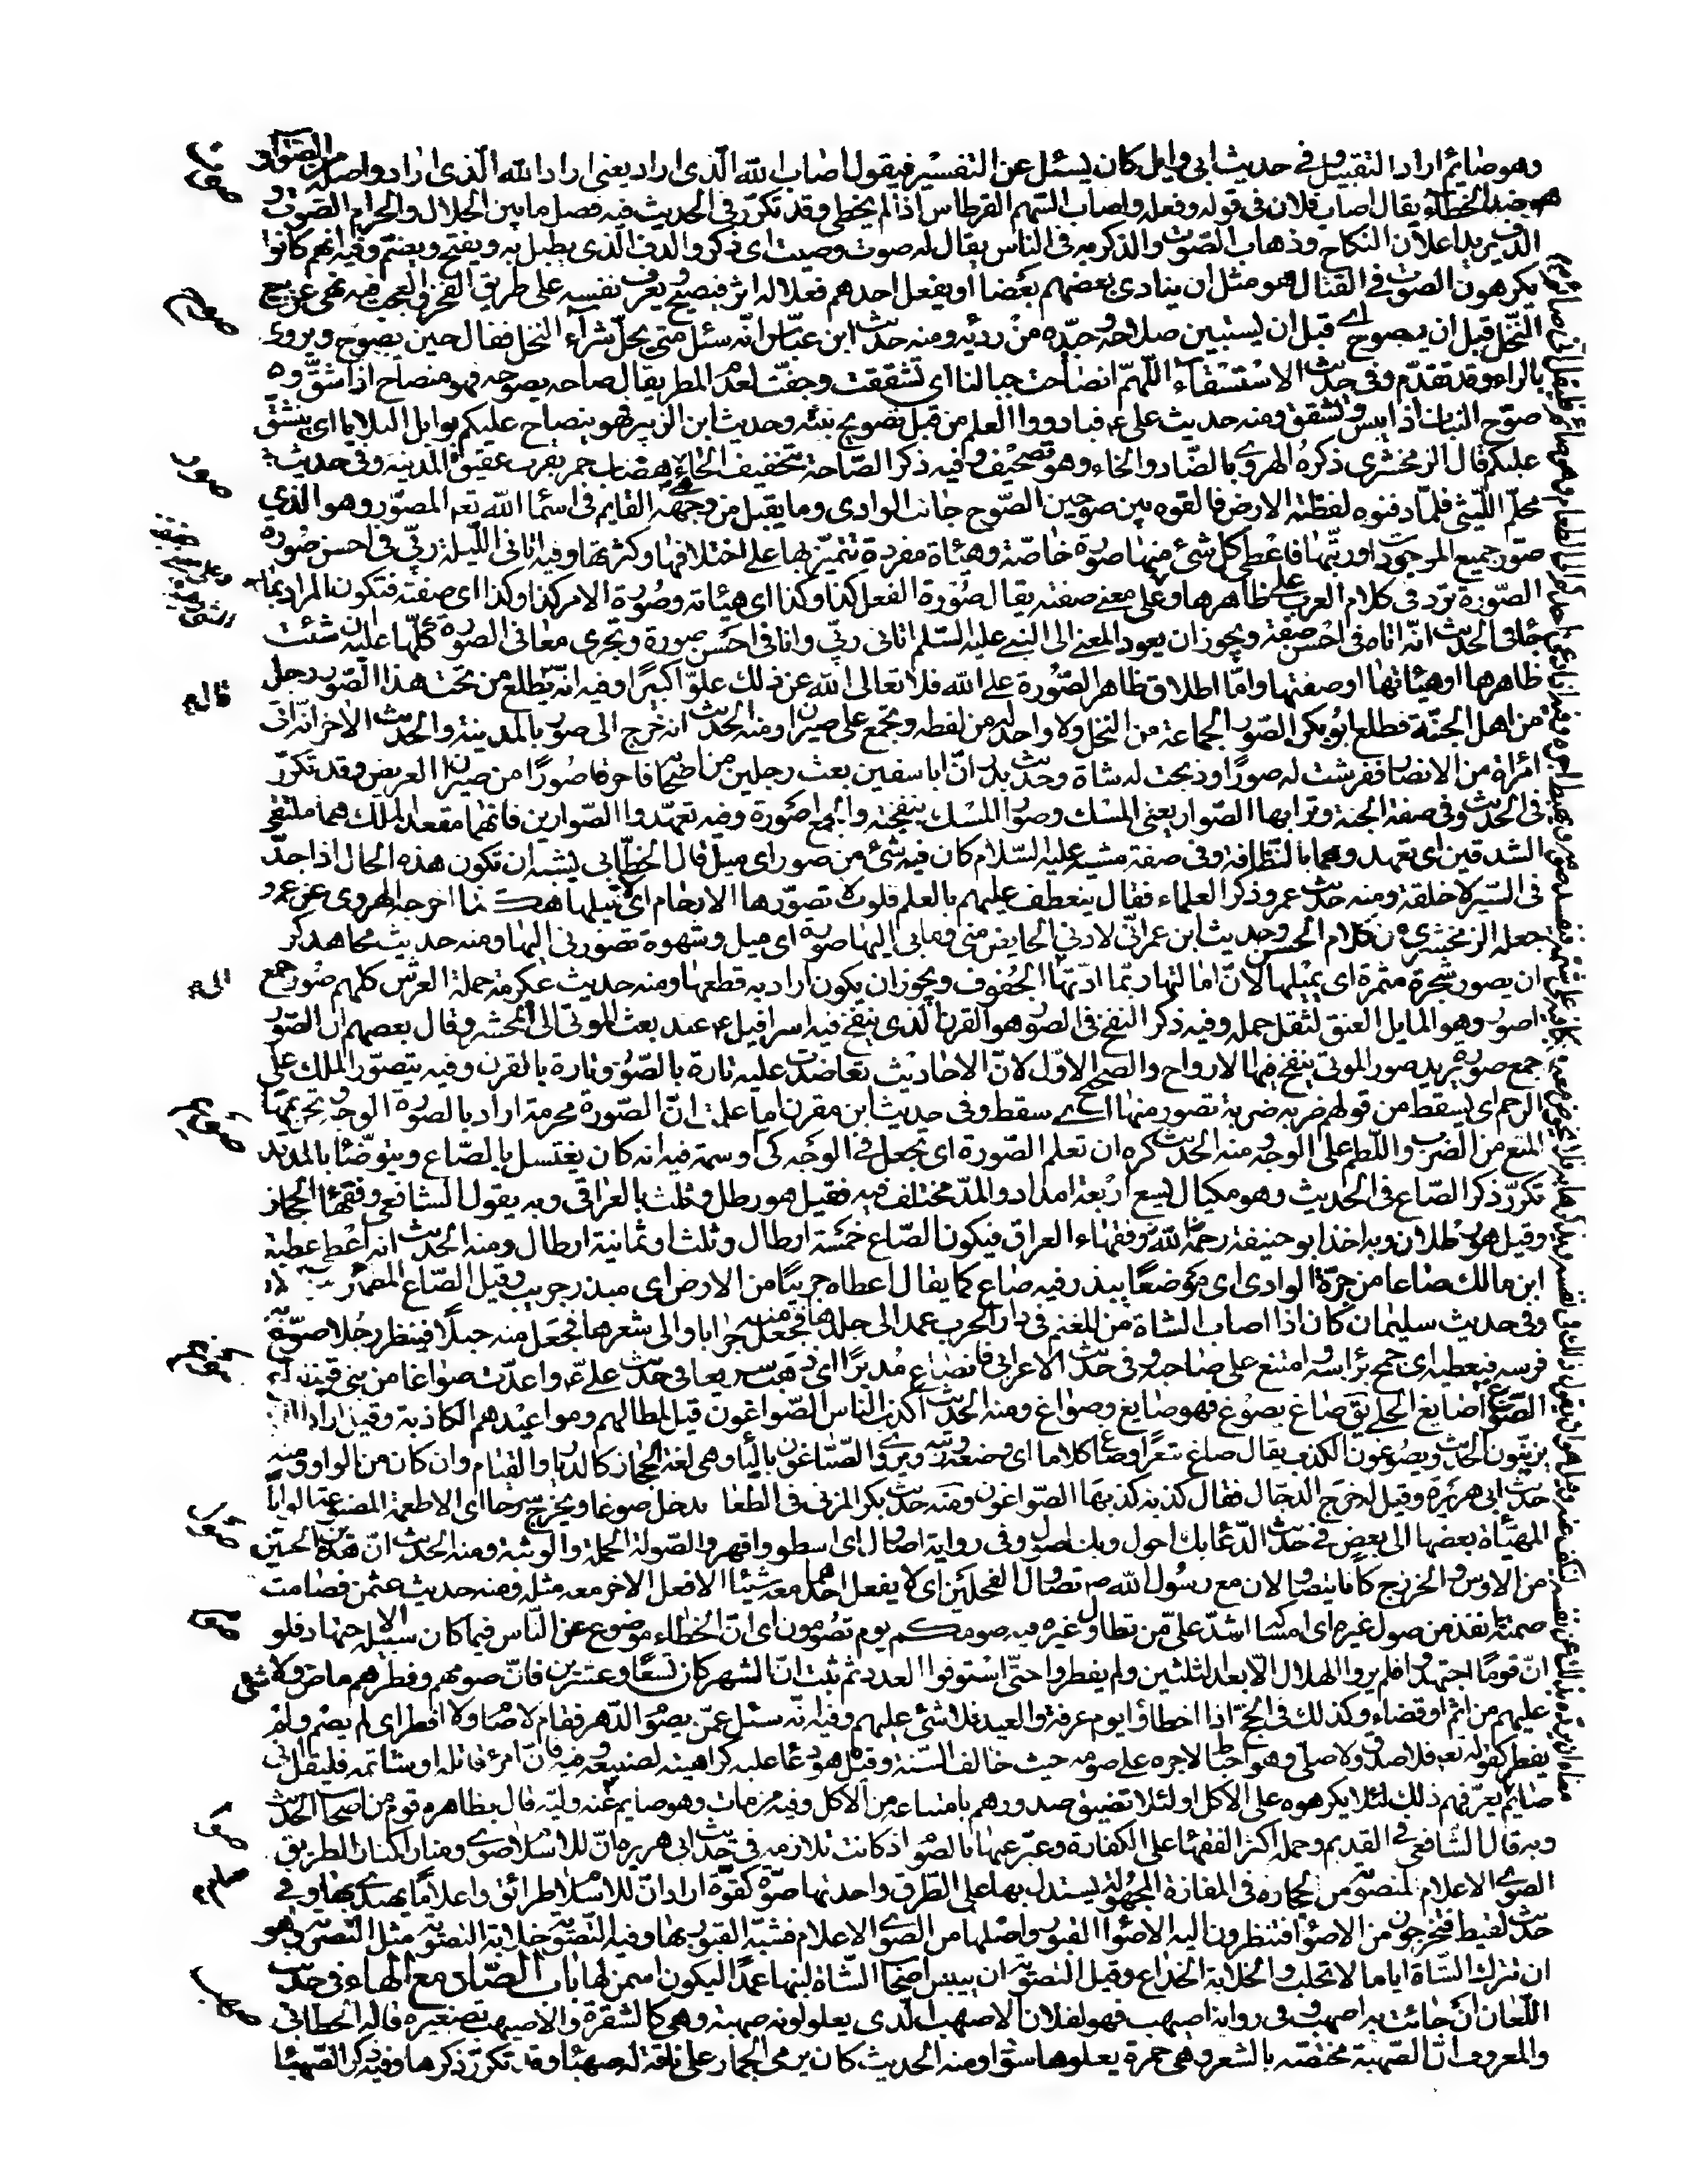 وهو صايم اراد التقبيل وفي حديث ابى وايل كان يسئل عن التفسير فيقول اصاب الله الذى اراد يعنى اراد الله الذى اراد واصله من الصواب
وهو ضد الخطاء يقال اصاب فلان فى قوله وفعله واصاب السهم القرطاس اذا لم يخطى وقد تكرر فى الحديث فيه فصل ما بين الحلال والحرام الصوت و
الدف يريد اعلان النكاح وذهاب الصوت والذكر به فى الناس يقال له صوت وصيت اى ذكر والدف الذى يطبل به ويفتح ويضم وفيه انهم كانوا
يكرهون الصوت فى القتال هو مثل ان ينادى بعضهم بعضا او يفعل احدهم فعلا له اثر فيصيح ويعرف نفسه على طريق الفخر والعجب فيه نهى عن بيع
النخل قبل ان يصوح اى قبل ان يستبين صلاحه وجيده من رديه ومنه حديث ابن عباس انه سئل متى يحل شراء النخل فقال حين يصوح ويروى
بالراء وقد تقدم وفى حديث الاستسقاء اللهم انصاحت جبالنا اى تشققت وجفت لعدم المطر يقال صاحه يصوحه فهو منصاح اذا شقه و
صوح النبات اذا يبس وتشقق ومنه حديث على ع فبادروا العلم من قبل تصويح نبته وحديث ابن الزبير فهو ينصاح عليكم بوابل البلايا اى ينشق
عليكم قال الزمخشرى ذكره الهروى بالضاد والخاء وهو تصحيف وفيه ذكر الصاحة بتخفيف الحاء هضاب حمر بقرب عقيق المدينة وفى حديث
محلم الليثى فلما دفنوه لفظته الارض فالقوه بين صوحين الصوح جانب الوادى وما يقبل من وجهه القايم فى اسماء الله تعه المصور وهو الذى
صور جميع الموجودات ورتبها فاعطى كل شئ منها صورة خاصة وهيئاة مفردة تتميز بها على اختلافها وكثرتها وفيه اتانى الليلة ربى فى احسن صورة
الصورة ترد فى كلام العرب على ظاهرها وعلى معنى صفته يقال صورة الفعل كذا وكذا اى هيئاته وصورة الامر كذا وكذا اى صفته فتكون المراد بما
جاء فى الحديث انه اتاه فى احسن صفة ويجوز ان يعود المعنى الى النبى عليه السلم اتانى ربى وانا فى احسن صورة وتجرى معانى الصورة كلها عليه ان شئت
ظاهرها او هيئاتها او صفتها واما اطلاق ظاهر الصورة على الله فلا تعالى الله عن ذلك علوا كبيرا وفيه انه يطلع من تحت هذا الصور رجل
من اهل الجنة فطلع ابو بكر الصور الجماعة من النخل ولا واحد له من لفظه ويجمع على صيران ومنه الحديث انه خرج الى صور بالمدينة والحديث الاخر انه اتى
امراة من الانصار ففرشت له صورا وذبحت له شاة وحديث بدر ان ابا سفين بعث رجلين من اصحابه فاحرقا صورا من صيران العريض وقد تكرر
فى الحديث وفى صفة الجنة وترابها الصوار يعنى المسك وصوار المسك ينفجته والجمع اصورة وفيه تعهدوا الصوارين فانهما مقعد الملك هما ملتقى
الشدقين اى تعهدوهما بالنظافة وفى صفة مشيه عليه السلام كان فيه شئ من صور اى ميل قال الخطابى يشبه ان تكون هذه الحال اذا جد
فى السير لا خلقة ومنه حديث عمر وذكر العلماء فقال ينعطف عليهم بالعلم قلوب لا تصورها الارحام اى لا تميلها هكذا اخرجه الهروى عن عمر و
جعله الزمخشرى من كلام الحسن وحديث ابن عمر انى لادنى الحايض منى وما بى اليها صورة اى ميل وشهوة تصورنى اليها ومنه حديث مجاهد كره
ان يصور شجرة مثمرة اى يميلها لان امالتها ربما ادتها الجفوف ويجوز ان يكون اراد به قطعها ومنه حديث عكرمة حملة العرش كلهم صور جمع
اصور وهو المايل العنق لثقل حمله وفيه ذكر النفخ فى الصور هو القرن الذى ينفخ فيه اسرافيل ع عند بعث الموتى الى المحشر وقال بعضهم ان الصور
جمع صورة يريد صور الموتى ينفخ فيها الارواح والصحيح الاول لان الاحاديث تعاضدت عليه تارة بالصور وتارة بالقرن وفيه يتصور الملك على
الرحم اى يسقط من قولهم ضربه ضربة تصور منها اى سقط وفى حديث ابن مقرن اما علمت ان الصورة محرمة اراد بالصورة الوجه وتحريمها
المنع من الضرب واللطم على الوجه ومنه الحديث كره ان تعلم الصورة اى تجعل فى الوجه كى او سمة فيه انه كان يغتسل بالصاع ويتوضا بالمد قد
تكرر ذكر الصاع فى الحديث وهو مكيال يسع اربعة امداد والمد مختلف فيه فقيل هو رطل وثلث بالعراقى وبه يقول الشافعى وفقهاء الحجاز
وقيل هو رطلان وبه اخذ ابو حنيفة رحمه الله وفقهاء العراق فيكون الصاع خمسة ارطال وثلثا وثمانية ارطال ومنه الحديث انه اعطى عطية
ابن مالك صاعا من حرة الوادى اى موضعا يبذر فيه صاع كما يقال اعطاه جريبا من الارض اى مبذر جريب وقيل الصاع المطمئن
وفى حديث سليمان كان اذا اصاب الشاة من المغنم فى دار الحرب عمد الى جلدها فجعل منه جرابا والى شعرها فجعل منه حبلا فينظر رجلا صوع به
فرسه فيعطيه اى جمح براسه وامتنع على صاحبه وفى حديث الاعرابى فانصاع مدبرا اى ذهب سريعا فى حديث على ع واعدت صواغا من بنى قينقاع
الصواغ صايغ الحلى يق صاغ يصوغ فهو صايغ وصواغ ومنه الحديث اكذب الناس الصواغون قيل لمطالهم ومواعيدهم الكاذبة وقيل اراد
يزينون الحديث ويصوغون الكذب يقال صاغ شعرا وصاغ كلاما اى وضعه ورتبه ويروى الصياغون بالياء وهى لغة الحجاز كالديار والقيام وان كان من الواو ومنه
حديث ابى هريرة وقيل له خرج الدجال فقال كذبة كذبها الصواغون ومنه حديث بكر المزنى فى الطعام يدخل صوغا ويخرج سرحا اى الاطعمة المصنوعة الوانا
المهيئاة بعضها الى بعض فى حديث الدعا بك احول وبك اصول وفى رواية اصاول اى اسطو واقهر والصولة الحملة والوثبة ومنه الحديث ان هذين الحيين
من الاوس والخزرج كانا يتصاولان مع رسول الله ص تصاول الفحلين اى لا يفعل احدهما معه شيئا الا فعل الاخر معه مثله ومنه حديث عثمن فصامت
صمته انفذ من صول غيره اى امساكه اشد على من تطاول غيره فيه صومكم يوم تصومون اى ان الخطاء موضوع عن الناس فيما كان سبيله الاجتهاد فلو
ان قوما اجتهدوا فلم يروا الهلال الا بعد الثلثين ولم يفطروا حتى استوفوا العدد ثم ثبت ان الشهر كان تسعا وعشرين فان صومهم وفطرهم ماض ولا شئ
عليهم من اثم او قضاء وكذلك فى الحج اذا اخطأوا يوم عرفة والعيد فلا شئ عليهم وفيه انه سئل عمن يصوم الدهر فقال لا صام ولا افطر اى لم يصم ولم
يفطر كقوله تعه فلا صدق ولا صلى وهو احباط لاجره على صومه حيث خالف السنة وقيل هو دعا عليه كراهية لصنيعه وفيه فان امرؤ قاتله او شاتمه فليقل انى
صايم يعرفهم ذلك لئلا يكرهوه على الاكل او لئلا تضيق صدورهم بامتناعه من الاكل وفيه من مات وهو صايم عنه وليه قال بظاهره قوم من اصحاب الحديث
وبه قال الشافعى فى القديم وحمله اكثر الفقهاء على الكفارة وعبر عنها بالصوم اذ كانت تلازمه فى حديث ابى هريرة ان للاسلام صوى ومنارا كمنار الطريق
الصوى الاعلام المنصوبة من الحجارة فى المفازة المجهولة يستدل بها على الطرق واحدتها صوة كقوة اراد ان للاسلام طرائق واعلاما يهتدى بها وفى
حديث لقيط فتخرجون من الاصواء فتنظرون اليه الاصواء القبور واصلها من الصوى الاعلام فشبه القبور بها وفيه التصوية خلابة التصوية مثل التصرية هو
ان تترك الشاة اياما لا تحلب والخلابة الخداع وقيل التصوية ان ييبس اصحاب الشاة لبنها عمدا ليكون اسمن لها باب الصاد مع الهاء فى حديث
اللعان ان جائت به اصهب وفى رواية اصيهب فهو لفلان الاصهب الذى يعلو لونه صهبة وهى كالشقرة والاصيهب تصغيره قاله الخطابى
والمعروف ان الصهبة مختصة بالشعر وهى حمرة يعلوها سواد ومنه الحديث كان يرمى الجمار على ناقة له صهباء وقد تكرر ذكرها وفيه ذكر الصهباء